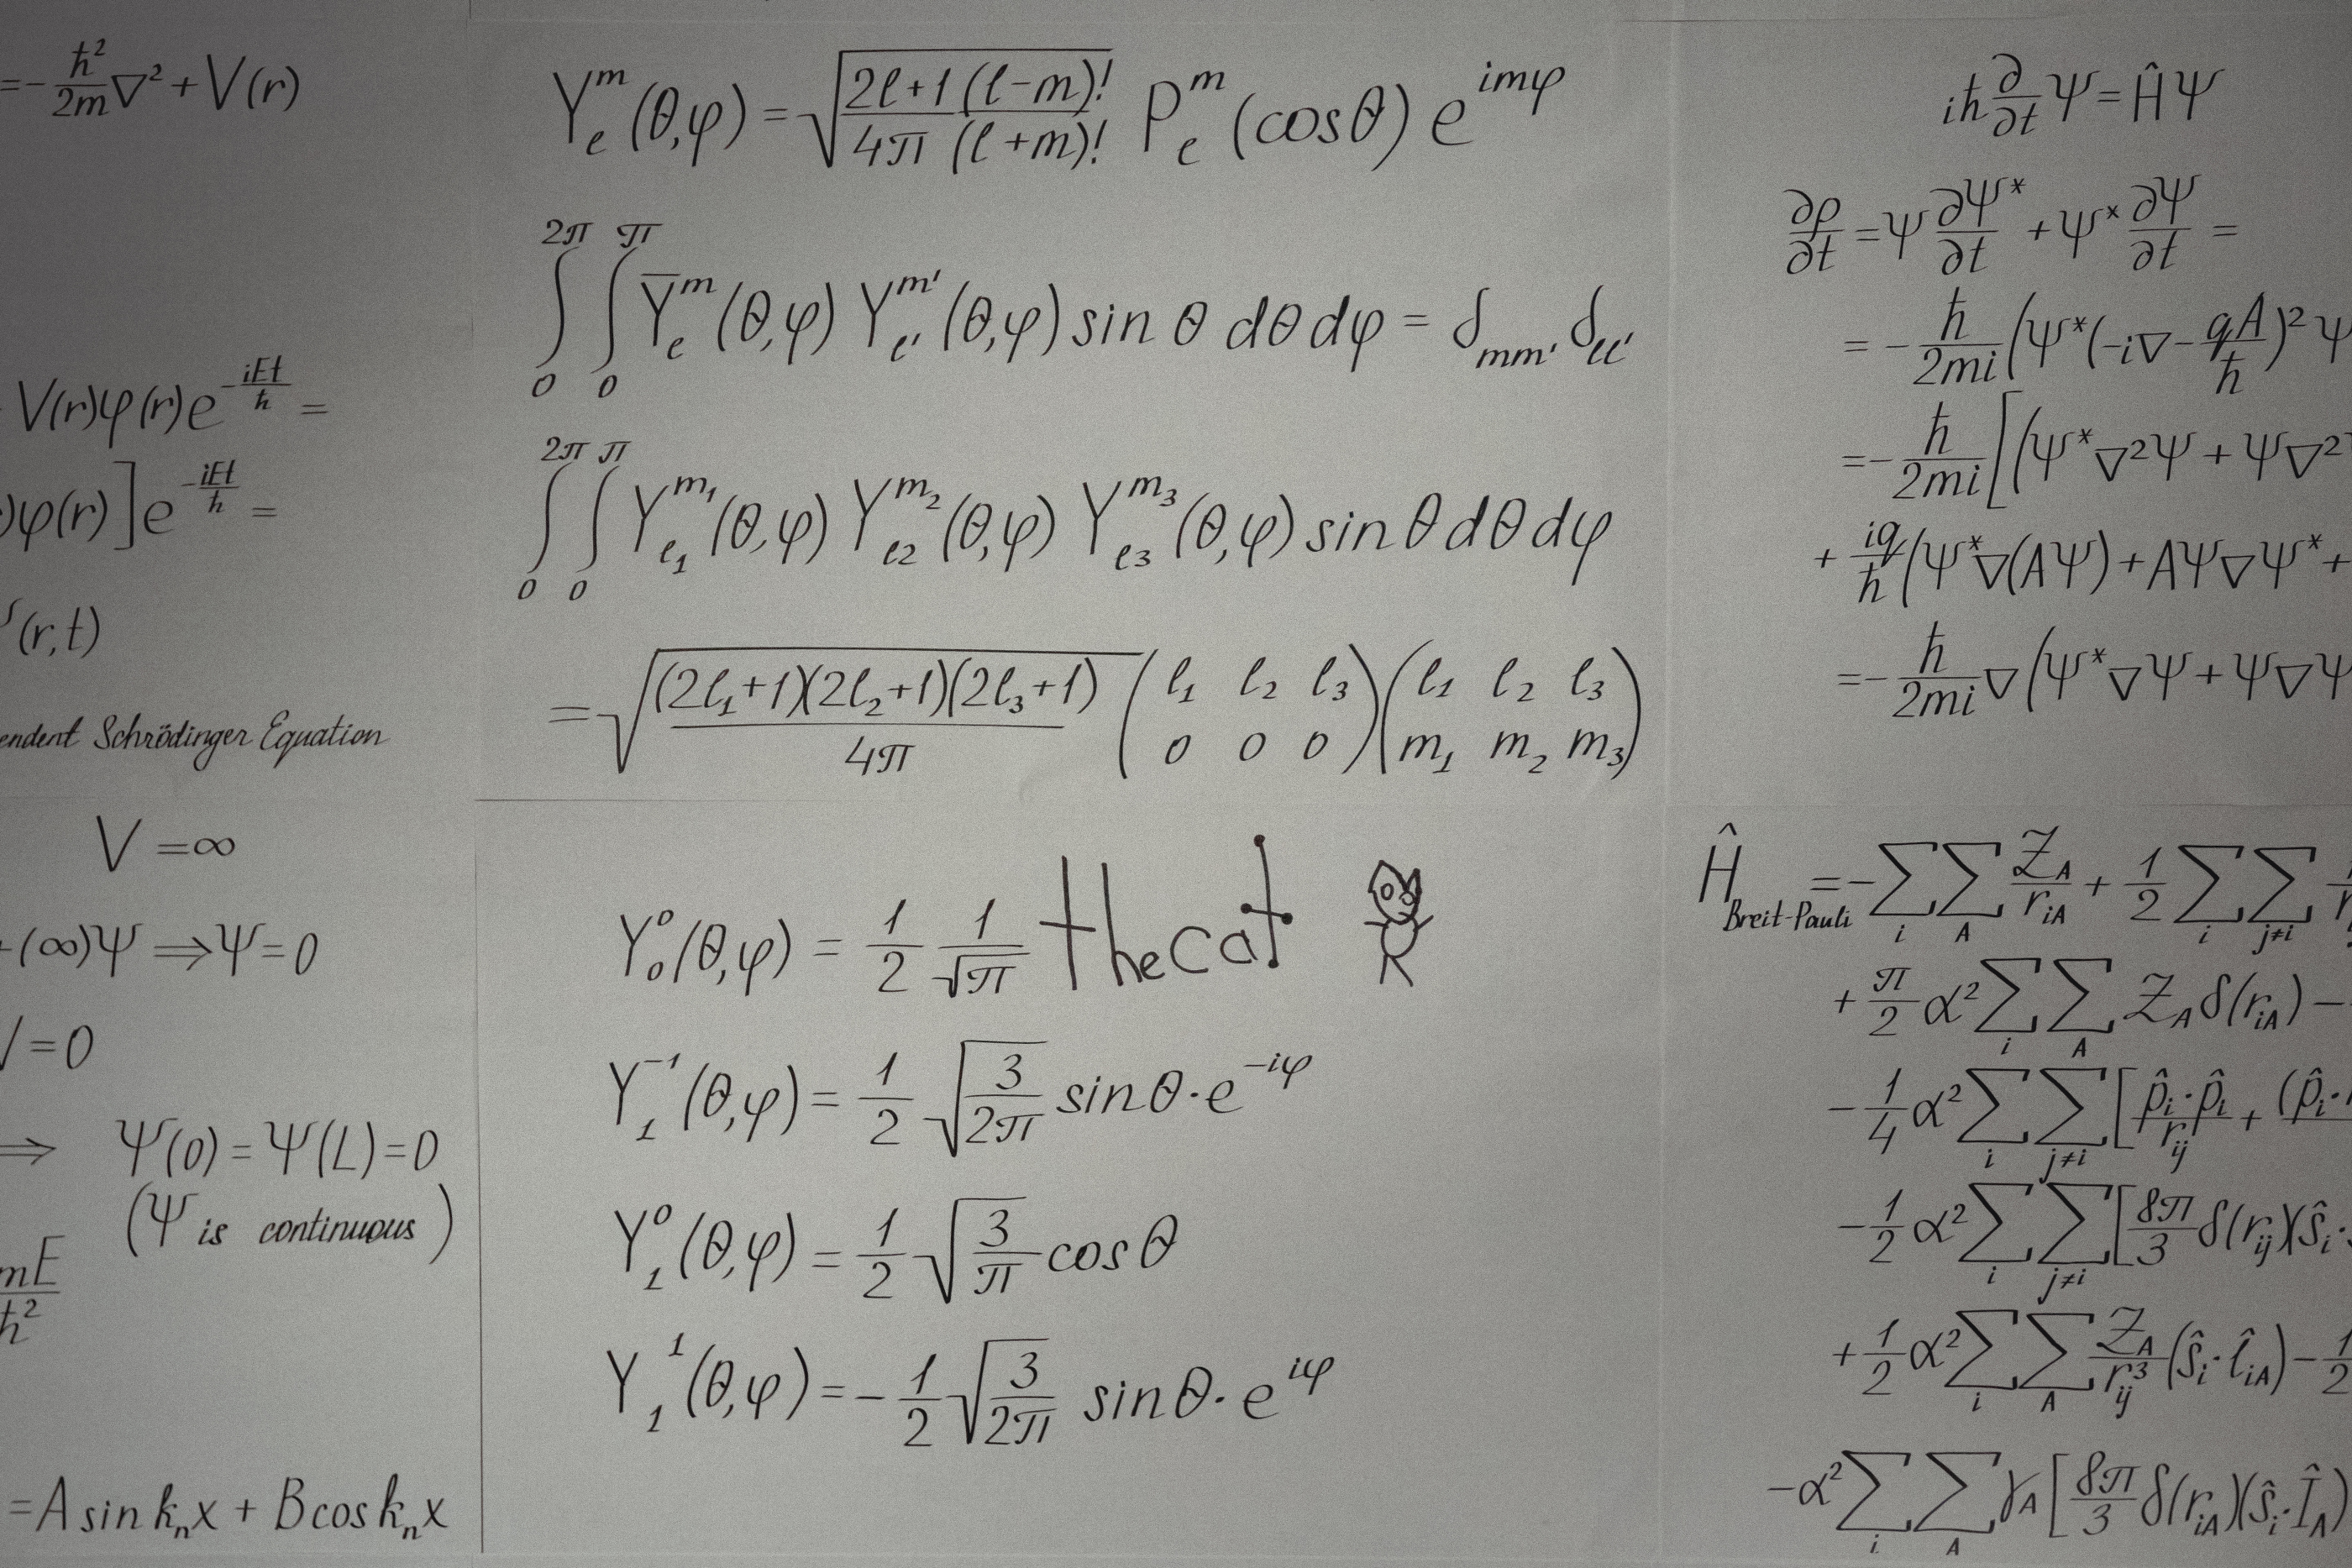 =-ħ²/2m ∇² + V(r)
V(r)φ(r)e^(-iEt/ħ) =
)φ(r)]e^(-iEt/ħ) =
(r,t)
endent Schrödinger Equation
V =∞
(∞)Ψ ⇒Ψ=0
=0
⇒ Ψ(0)=Ψ(L)=0
(Ψ is continuous)
mE/ħ²
=A sin kₙx + B cos kₙx
Y_ℓ^m(θ,φ) = √((2ℓ+1 (ℓ-m)!)/(4π (ℓ+m)!)) P_ℓ^m(cosθ) e^(imφ)
∫_0^(2π) ∫_0^π Y̅_ℓ^m(θ,φ) Y_ℓ'^m'(θ,φ) sin θ dθ dφ = δ_mm' δ_ℓℓ'
∫_0^(2π) ∫_0^π Y_ℓ₁^m₁(θ,φ) Y_ℓ2^m₂(θ,φ) Y_ℓ3^m₃(θ,φ) sin θ dθ dφ
= √((2ℓ₁+1)(2ℓ₂+1)(2ℓ₃+1)/4π) (ℓ₁ ℓ₂ ℓ₃ / 0 0 0)(ℓ₁ ℓ₂ ℓ₃ / m₁ m₂ m₃)
Y_0^0(θ,φ) = 1/2 1/√π the cat
Y_1^-1(θ,φ) = 1/2 √(3/2π) sinθ·e^(-iφ)
Y_1^0(θ,φ) = 1/2 √(3/π) cosθ
Y_1^1(θ,φ) = -1/2 √(3/2π) sinθ·e^(iφ)
iħ ∂/∂t Ψ = ĤΨ
∂ρ/∂t = Ψ ∂Ψ*/∂t + Ψ* ∂Ψ/∂t =
= -ħ/2mi (Ψ*(-i∇ - qA/ħ)²Ψ
= -ħ/2mi [(Ψ*∇²Ψ + Ψ∇²
+ iq/ħ (Ψ*∇(AΨ) + AΨ∇Ψ* +
= -ħ/2mi ∇(Ψ*∇Ψ + Ψ∇Ψ
Ĥ_Breit-Pauli = -∑_i ∑_A Z_A/r_iA + 1/2 ∑_i ∑_j≠i
+ π/2 α² ∑_i ∑_A Z_A δ(r_iA) -
- 1/4 α² ∑_i ∑_j≠i [p̂_i·p̂_i/r_ij + (p̂_i·
- 1/2 α² ∑_i ∑_j≠i [8π/3 δ(r_ij)(ŝ_i·
+ 1/2 α² ∑_i ∑_A Z_A/r_ij³ (ŝ_i·ℓ̂_iA) - 1/2
- α² ∑_i ∑_A γ_A [8π/3 δ(r_iA)(ŝ_i·Î_A)